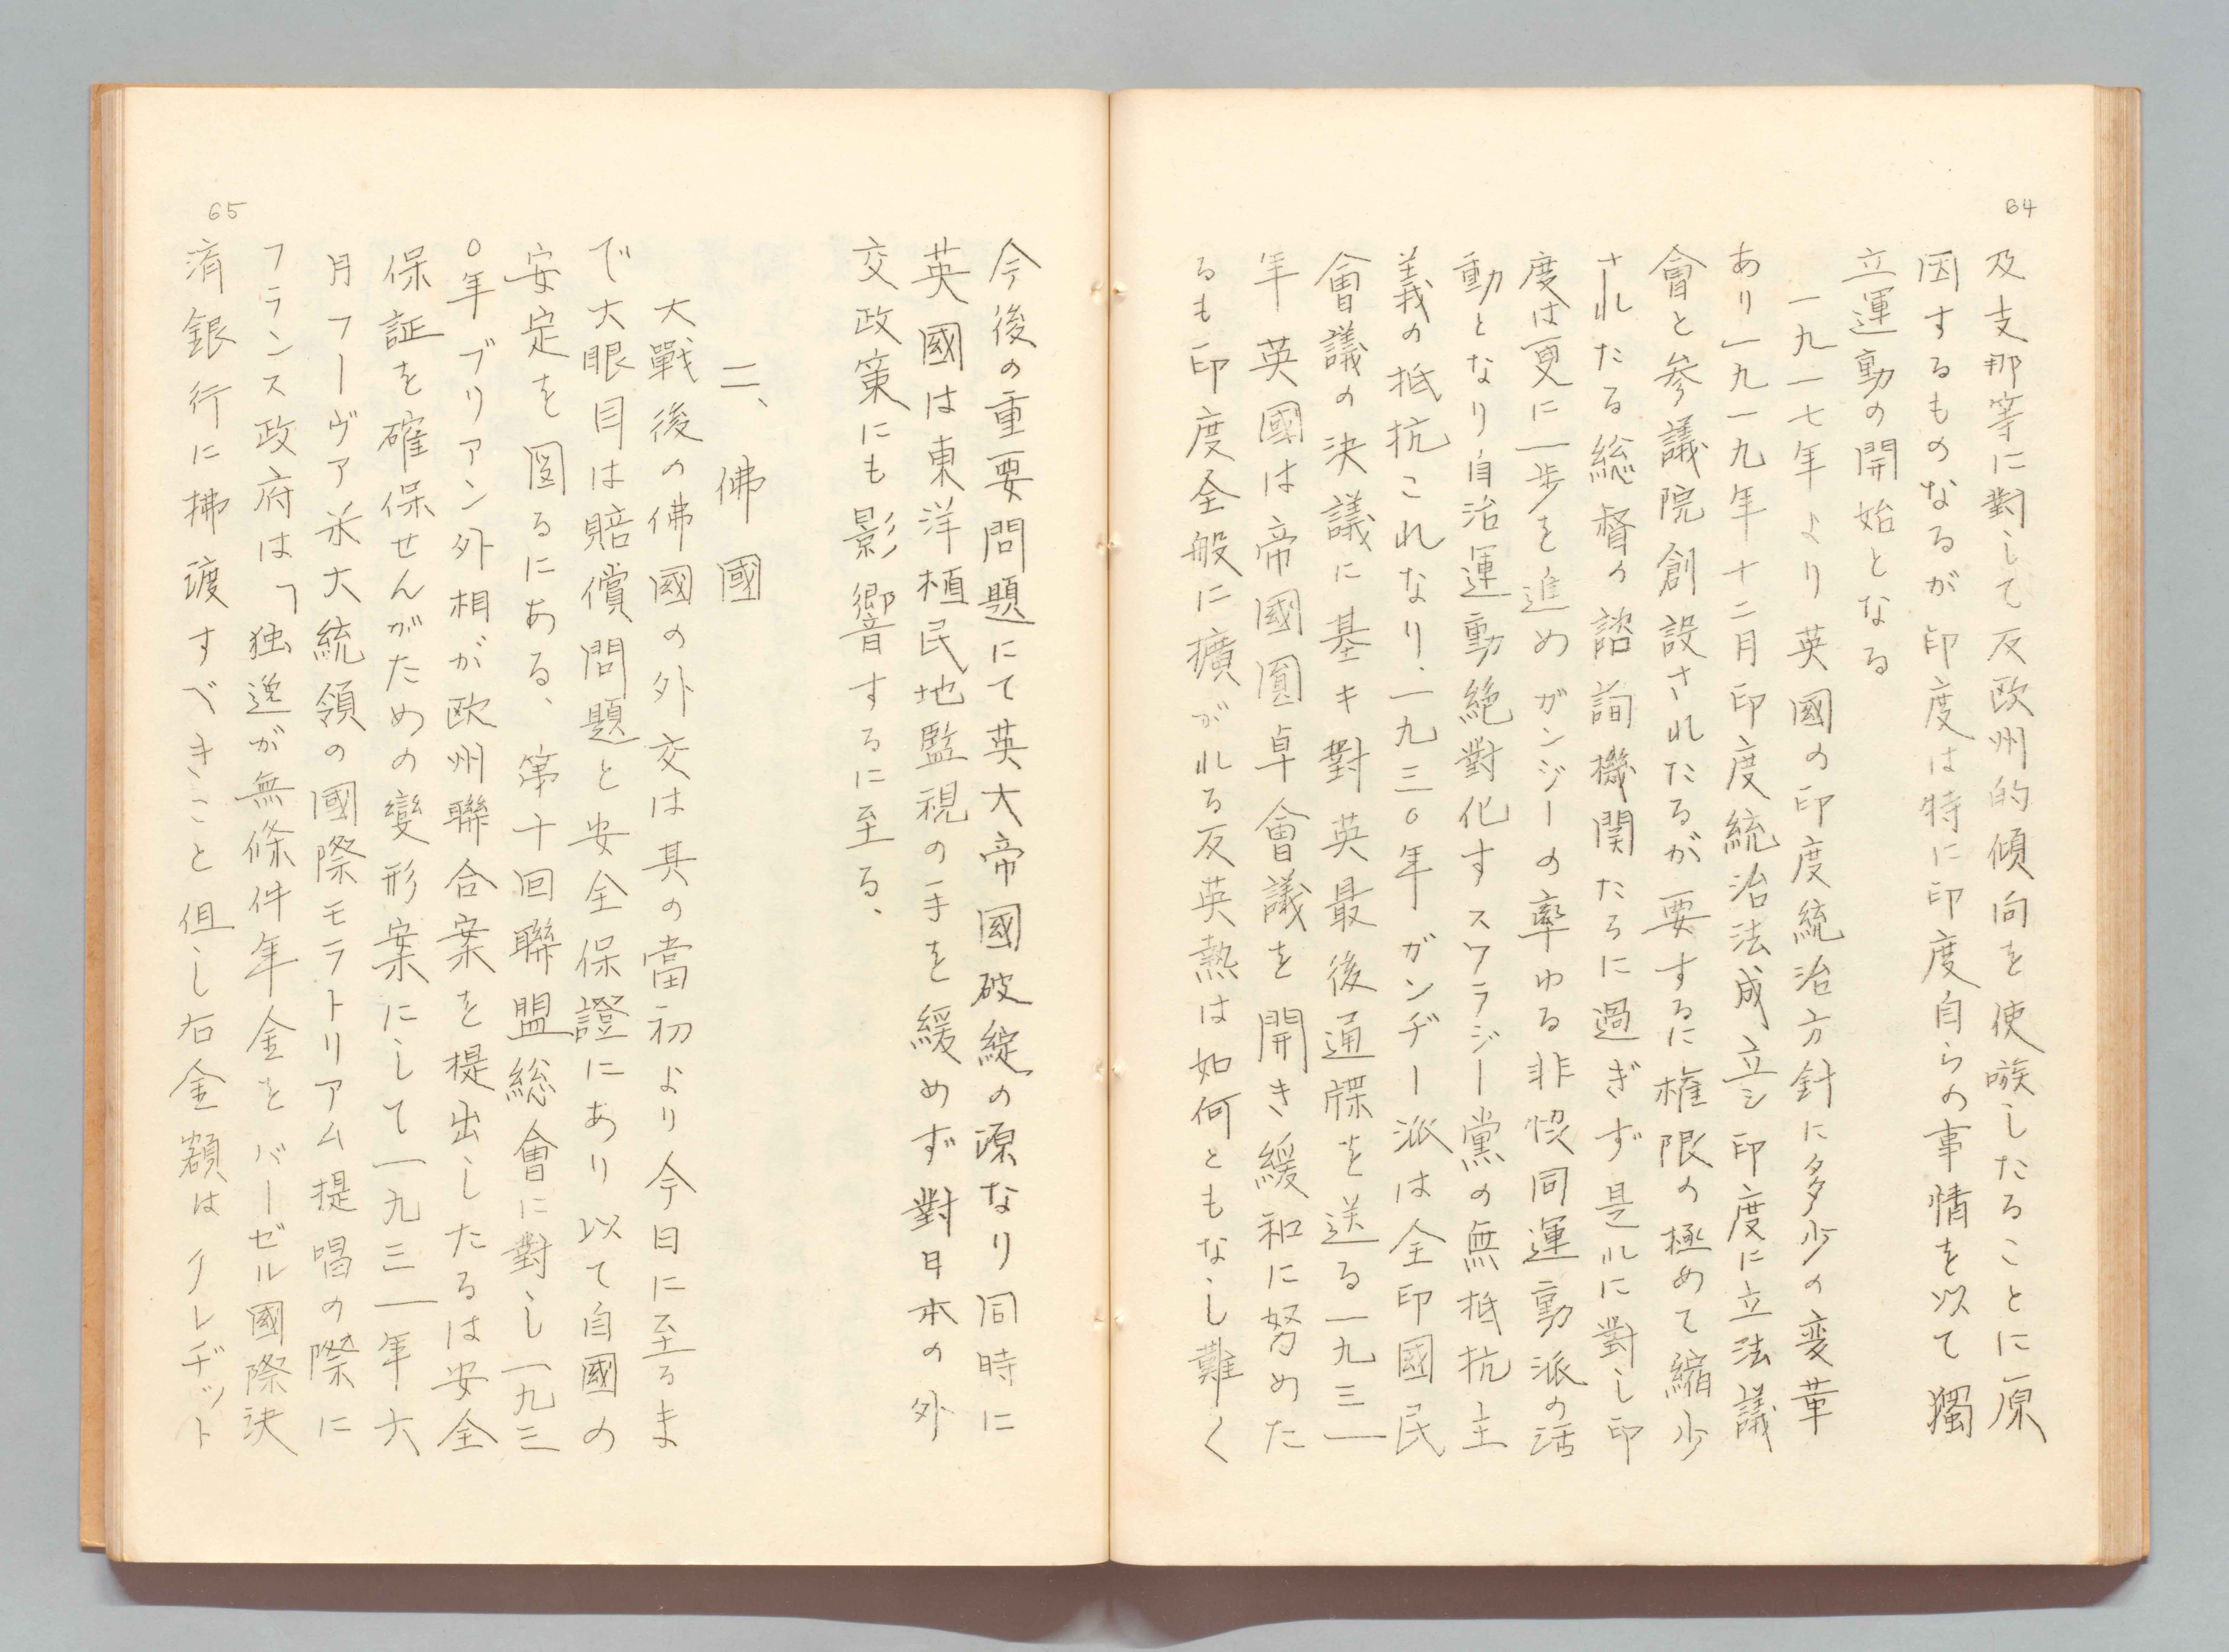 64
及支那等に對して反欧州的傾向を使嗾したることに原
因するものなるが印度は特に印度自らの事情を以て獨
立運動の開始となる
一九一七年より英國の印度統治方針に多少の変革
あり一九一九年十二月印度統治法成立シ印度に立法議
會と参議院創設されたるが要するに権限の極めて縮少
されたる総督の諮詢機関たるに過ぎず是れに對し印
度は更に一歩を進めガンジーの率ゆる非協同運動派の活
動となり自治運動絶對化すスワラジー黨の無抵抗主
義の抵抗これなり.一九三〇年ガンヂー派は全印國民
會議の決議に基キ對英最後通牒を送る一九三一
年英國は帝國圓卓會議を開き緩和に努めた
るも印度全般に擴がれる反英熱は如何ともなし難く
今後の重要問題にて英大帝國破綻の源なり同時に
英國は東洋植民地監視の手を緩めず對日本の外
交政策にも影響するに至る、
二、佛國
大戰後の佛國の外交は其の當初より今日に至るま
で大眼目は賠償問題と安全保證にあり以て自國の
安定を図るにある、第十回聯盟総會に對し一九三
〇年ブリアン外相が欧州聯合案を提出したるは安全
保証を確保せんがための變形案にして一九三一年六
月フーヴァ米大統領の國際モラトリアム提唱の際に
フランス政府は「独逸が無條件年金をバーゼル國際決
済銀行に拂渡すべきこと但し右金額はクレヂット
65